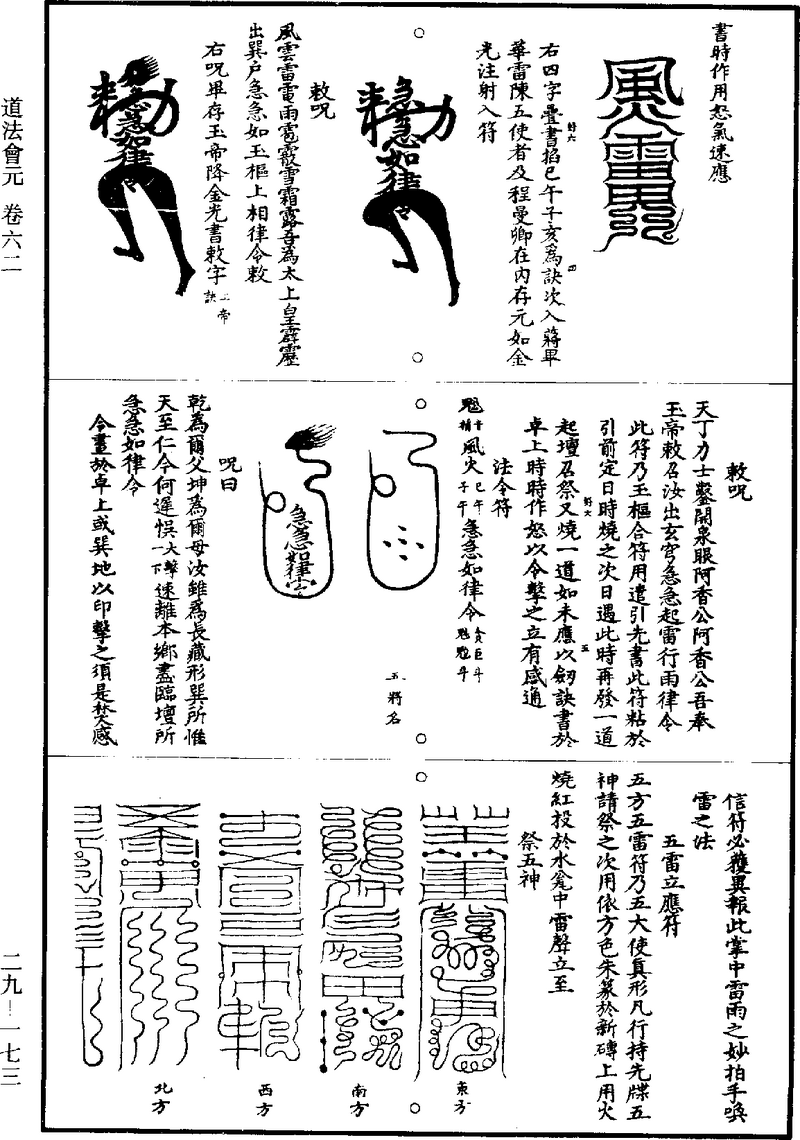 道法會元　卷六二
二九—一七三
書時作用怒氣速應
風火雷
右四字疊書掐巳午子亥爲訣次入蔣畢
華雷陳五使者及程曼卿在內存元如金
光注射入符
勑
急急如律令
敕呪
風雲雷電雨雹霰雪霜露吾為太上皇霹靂
出巽戶急急如玉樞上相律令敕
右呪畢存玉帝降金光書敕字
玉帝
訣
勑
急急如律令
敕呪
天丁力士鑿開泉眼阿香公阿香公吾奉
玉帝敕召汝出玄穹急急起雷行雨律令
此符乃玉樞合符用遣引先書此符粘於
引前定日時燒之次日遇此時再發一道
起壇召祭又燒一道如未應以劒訣書於
卓上時時作怒以令擊之立有感通
法令符
風火
巳午
子午
急急如律令
五將名
急急如律令
呪曰
乾為爾父坤為爾母汝雖為長藏形巽所惟
天至仁今何遲悞
一大擊
下
速離本鄉盡臨壇所
急急如律令
令畫於卓上或巽地以印擊之須是焚感
信符必獲異報此掌中雷雨之妙拍手喚
雷之法
五雷立應符
五方五雷符乃五大使真形凡行持先牒五
神請祭之次用依方色朱篆於新磚上用火
燒紅投於水瓮中雷聲立至
祭五神
東方
南方
西方
北方